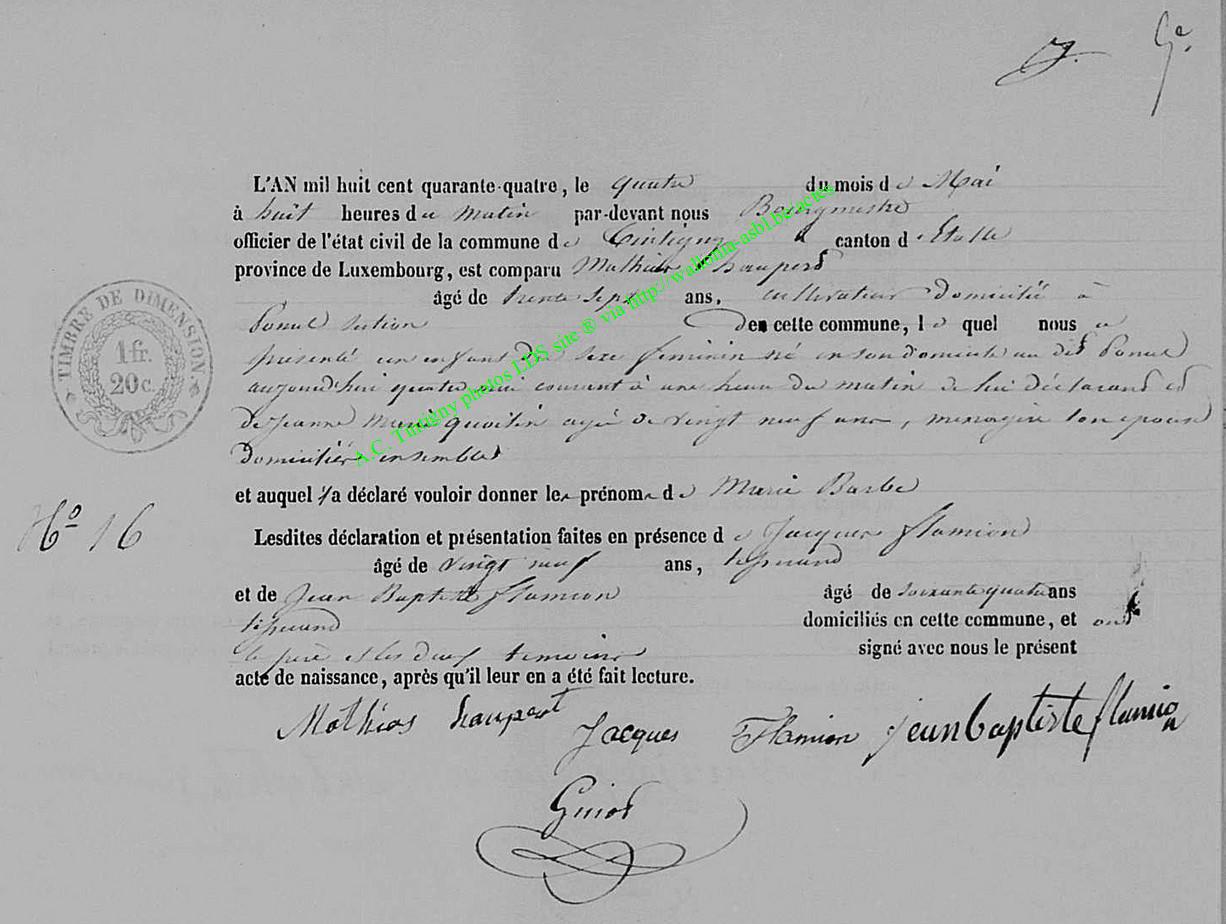 J. Ge.
L'AN mil huit cent quarante-quatre, le quatre du mois de Mai
à huit heures du matin par-devant nous Bourgmestre
officier de l'état civil de la commune de Tintigny canton d'Etalle
province de Luxembourg, est comparu Mathias haupert
âgé de trente sept ans, cultivateur domicilié à
Ponul section de cette commune, lequel nous a
présenté un enfant du sexe féminin né en son domicile au dit Ponul
aujourd'hui quatre mai courant à une heure du matin de lui déclarant et
de Jeanne Marie quoilin agée de vingt neuf ans, menagère son epouse
domiciliés ensembles
et auquel il a déclaré vouloir donner les prénoms de Marie Barbe
Lesdites déclaration et présentation faites en présence de Jacques flamion
âgé de vingt neuf ans, tisserand
et de Jean Baptiste flamion âgé de soixante quatre ans
tisserand domiciliés en cette commune, et ont
le père et les deux temoins signé avec nous le présent
acte de naissance, après qu'il leur en a été fait lecture.
Mathias haupert Jacques Flamion jean baptiste flamion
Guiot
TIMBRE DE DIMENSION
1 fr.
20 c.
No 16
A.C. Tintigny photos LDS site ® via http://wallonia-asbl.be/actes